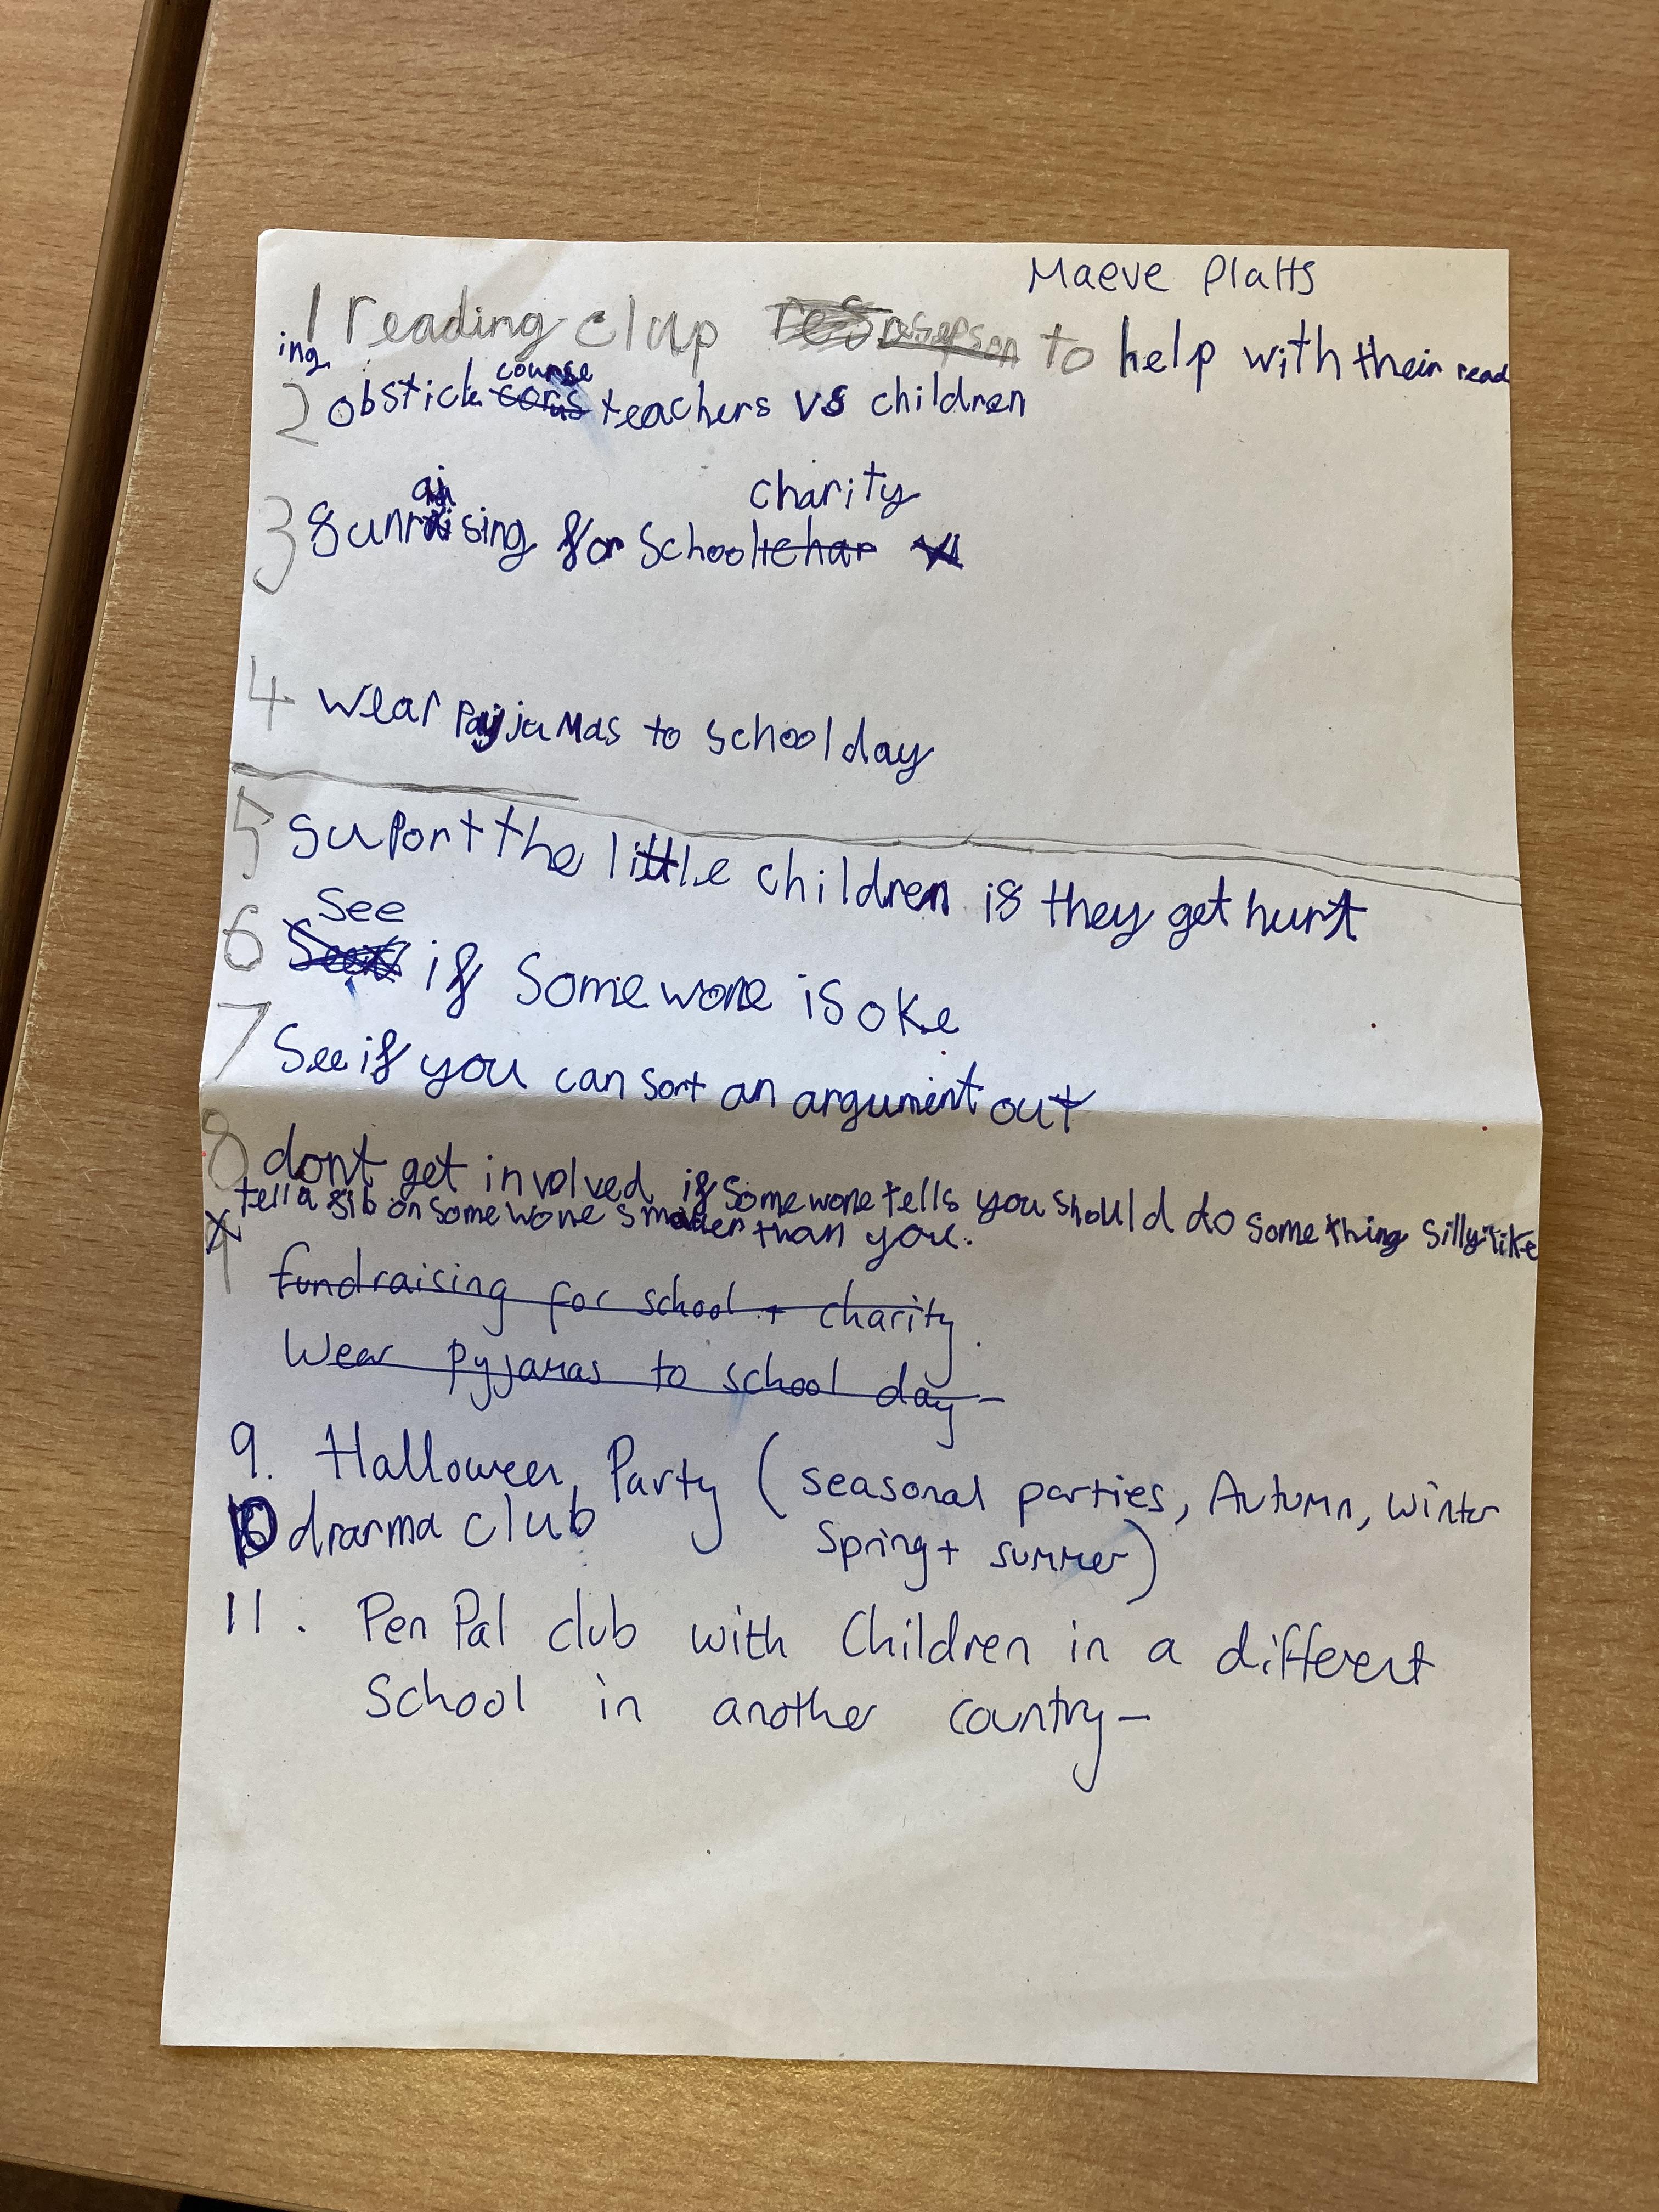 Maeve Platts
1 reading clup to help with their read
ing
2 obstick course teachers vs children
3 funraising for School charity
4 wear pajjamas to school day
5 suport the little children if they get hurt
6 See if Somewone is oke
7 See if you can sort an argument out
8 dont get involved if Somewone tells you should do something silly like
tell a fib on somewone smaller than you.
9
fundraising for school + charity.
Wear pyjamas to school day -
9. Halloween Party (seasonal parties, Autumn, Winter
Spring + summer)
10 drarma club
11. Pen Pal club with Children in a different
School in another country -